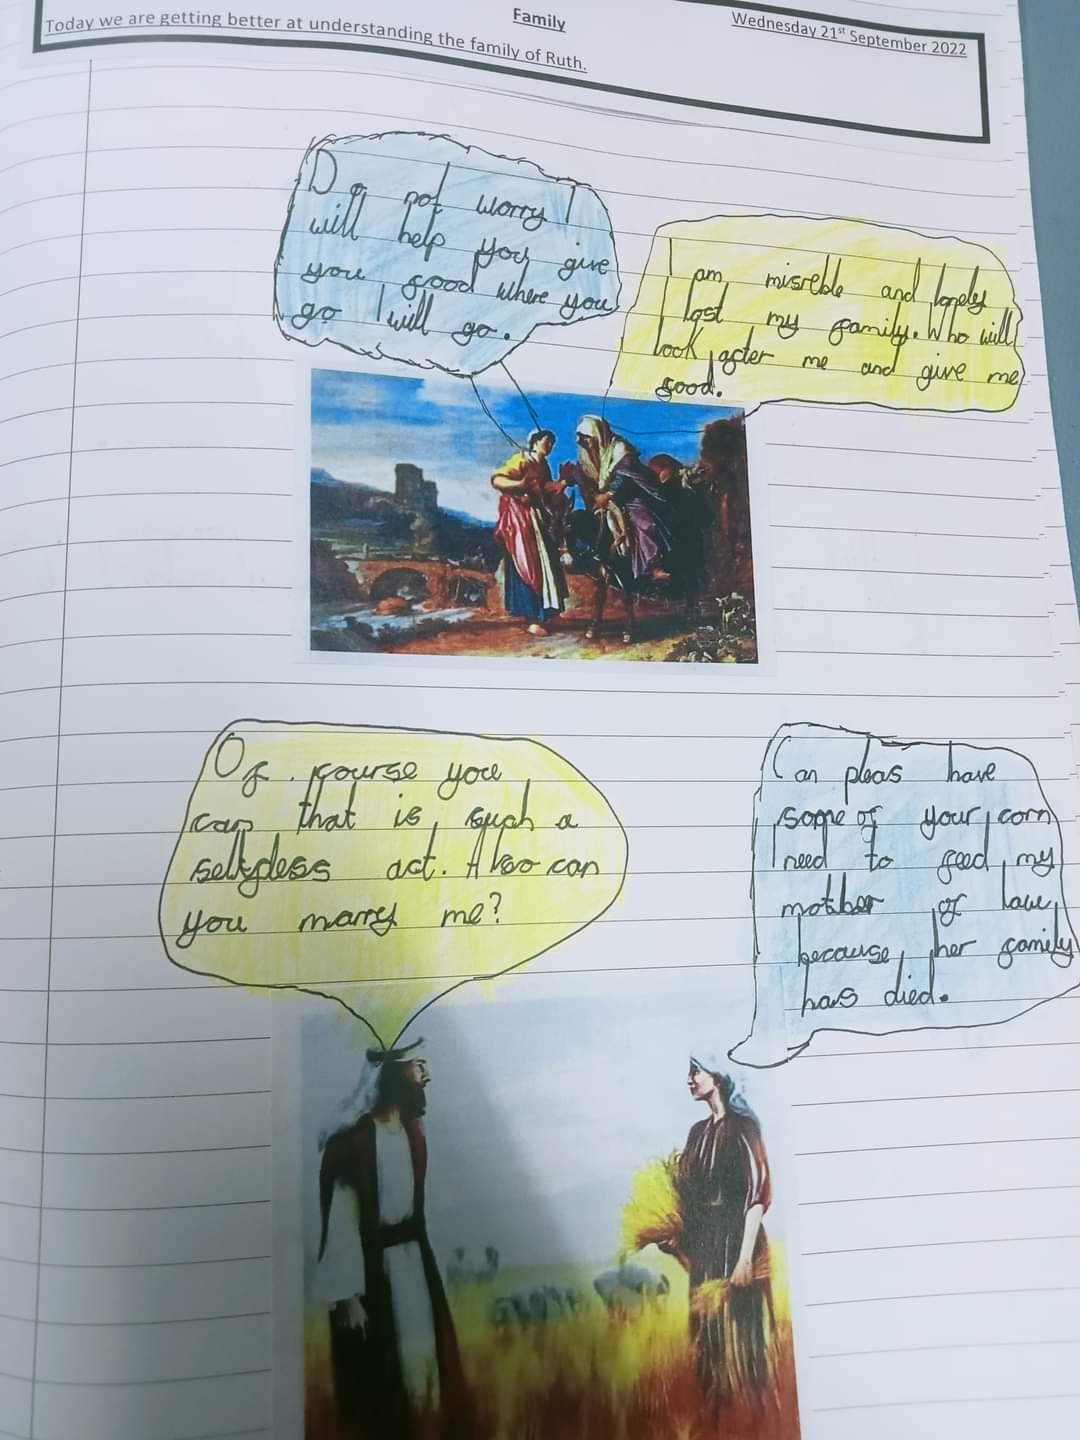 Family
Wednesday 21st September 2022
Today we are getting better at understanding the family of Ruth.
Do not worry I
will help you give
you food where you
go I will go.
I am misreble and lonely
I lost my family. Who will
look after me and give me
food.
Of course you
can that is such a
selfless act. Also can
you marry me?
Can pleas have
some of your corn
I need to feed my
mother of law
because her family
has died.